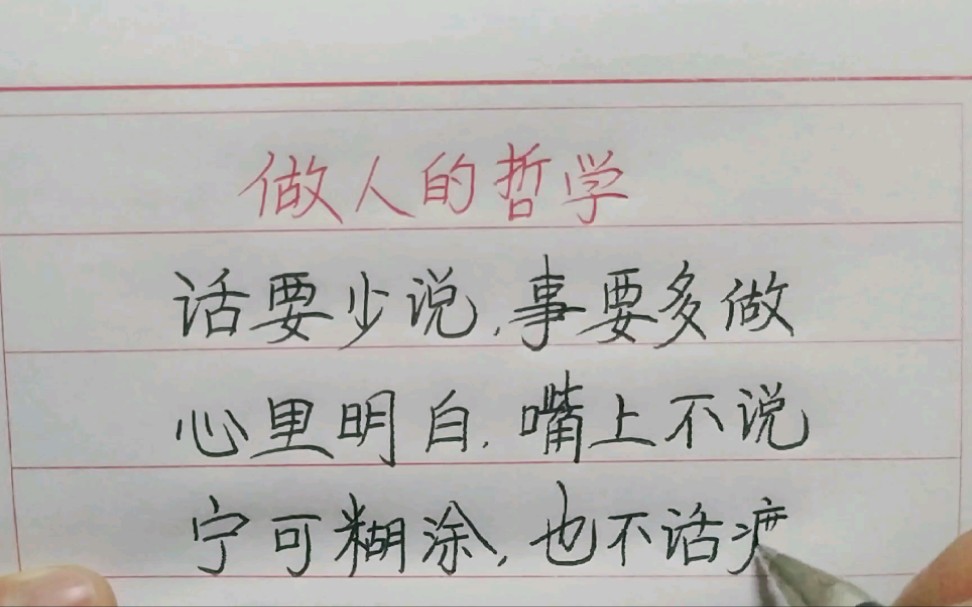 做人的哲学
话要少说,事要多做
心里明白,嘴上不说
宁可糊涂,也不话